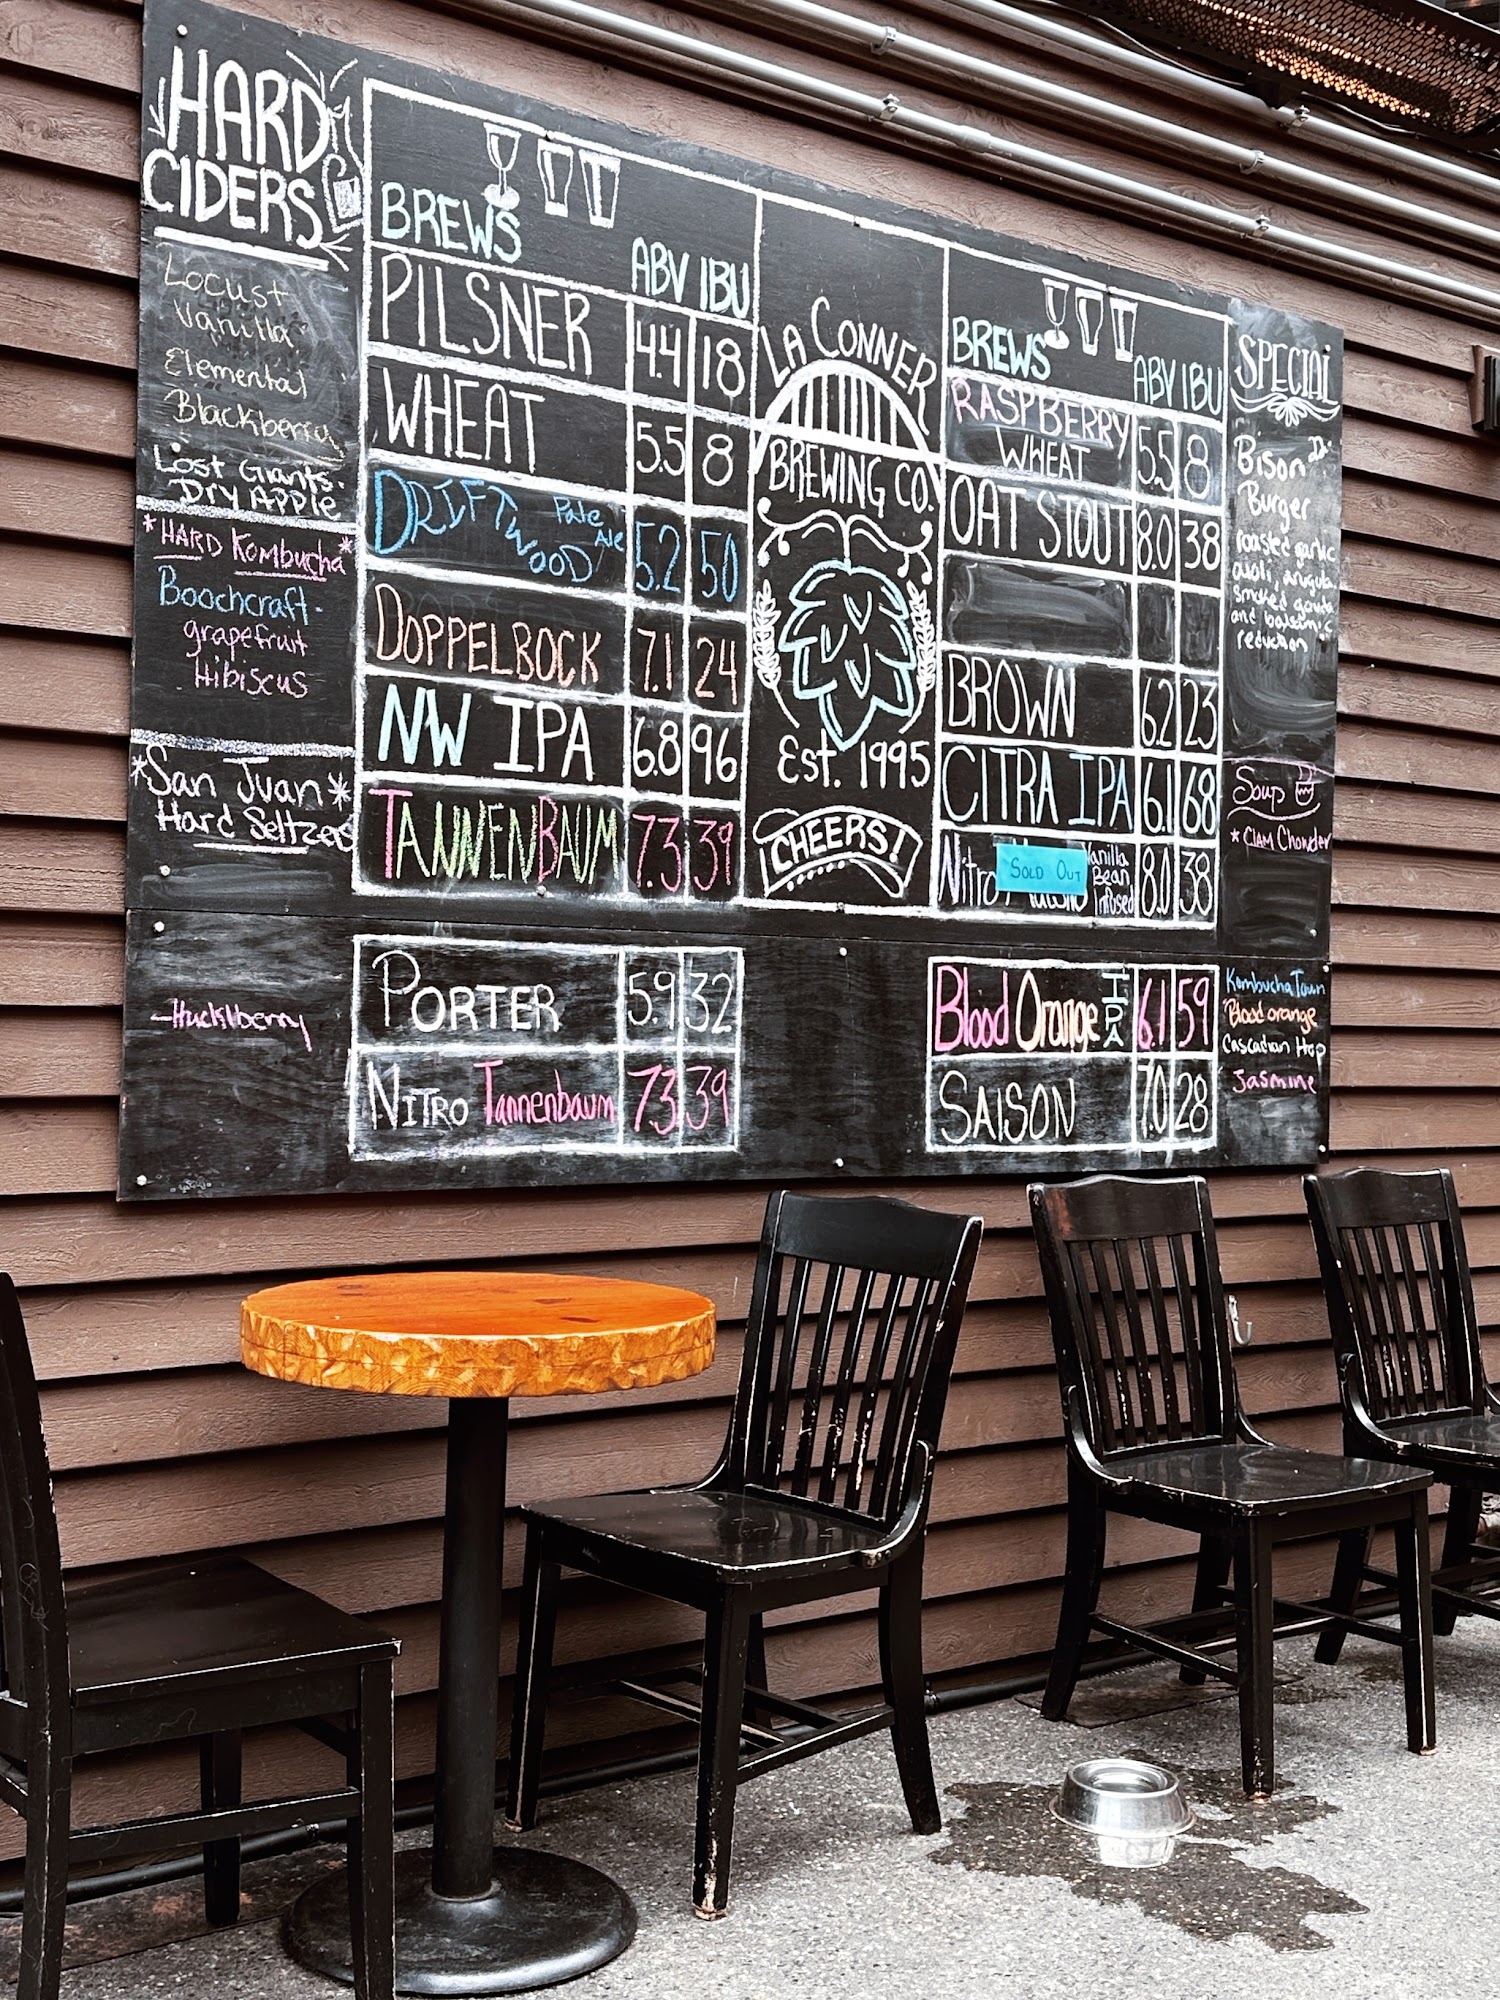 HARD
CIDERS
Locust
Vanilla
Elemental
Blackberry
Lost Giants-
Dry Apple
*HARD Kombucha*
Boochcraft-
grapefruit
Hibiscus
*San Juan*
Hard Seltzers
-Hucklberry
BREWS ABV IBU
PILSNER 4.4 18
WHEAT 5.5 8
DRIFTWOOD Pale Ale 5.2 50
DOPPELBOCK 7.1 24
NW IPA 6.8 96
TANNENBAUM 7.3 39
PORTER 5.9 32
NITRO Tannenbaum 7.3 39
LA CONNER
BREWING CO.
Est. 1995
CHEERS!
BREWS ABV IBU
RASPBERRY
WHEAT 5.5 8
OAT STOUT 8.0 38
BROWN 6.2 23
CITRA IPA 6.1 68
Nitro SOLD OUT Vanilla Bean Infused 8.0 38
Blood Orange IPA 6.1 59
SAISON 7.0 28
SPECIAL
Bison
Burger
roasted garlic
aioli, arugula,
smoked gouda
and balsamic
reduction
Soup
*Clam Chowder
Kombucha Town
Blood orange
Cascadian Hop
Jasmine